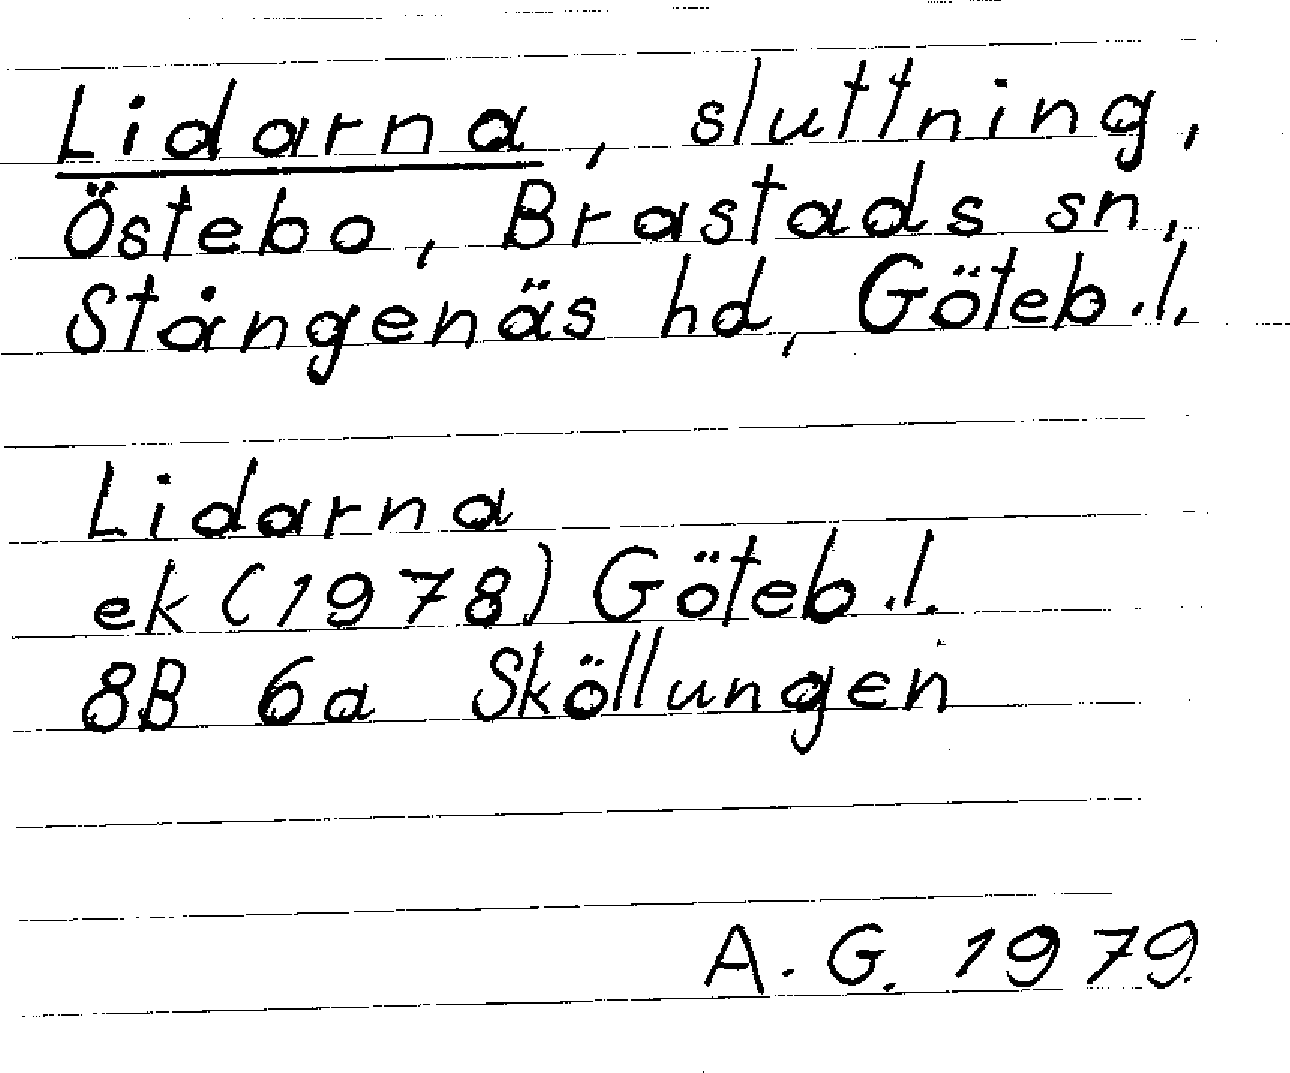 Lidarna, sluttning,
Östebo, Brastads sn,
Stångenäs hd, Göteb.l.
Lidarna
ek (1978) Göteb.l.
8B 6a Sköllungen
A. G. 1979.